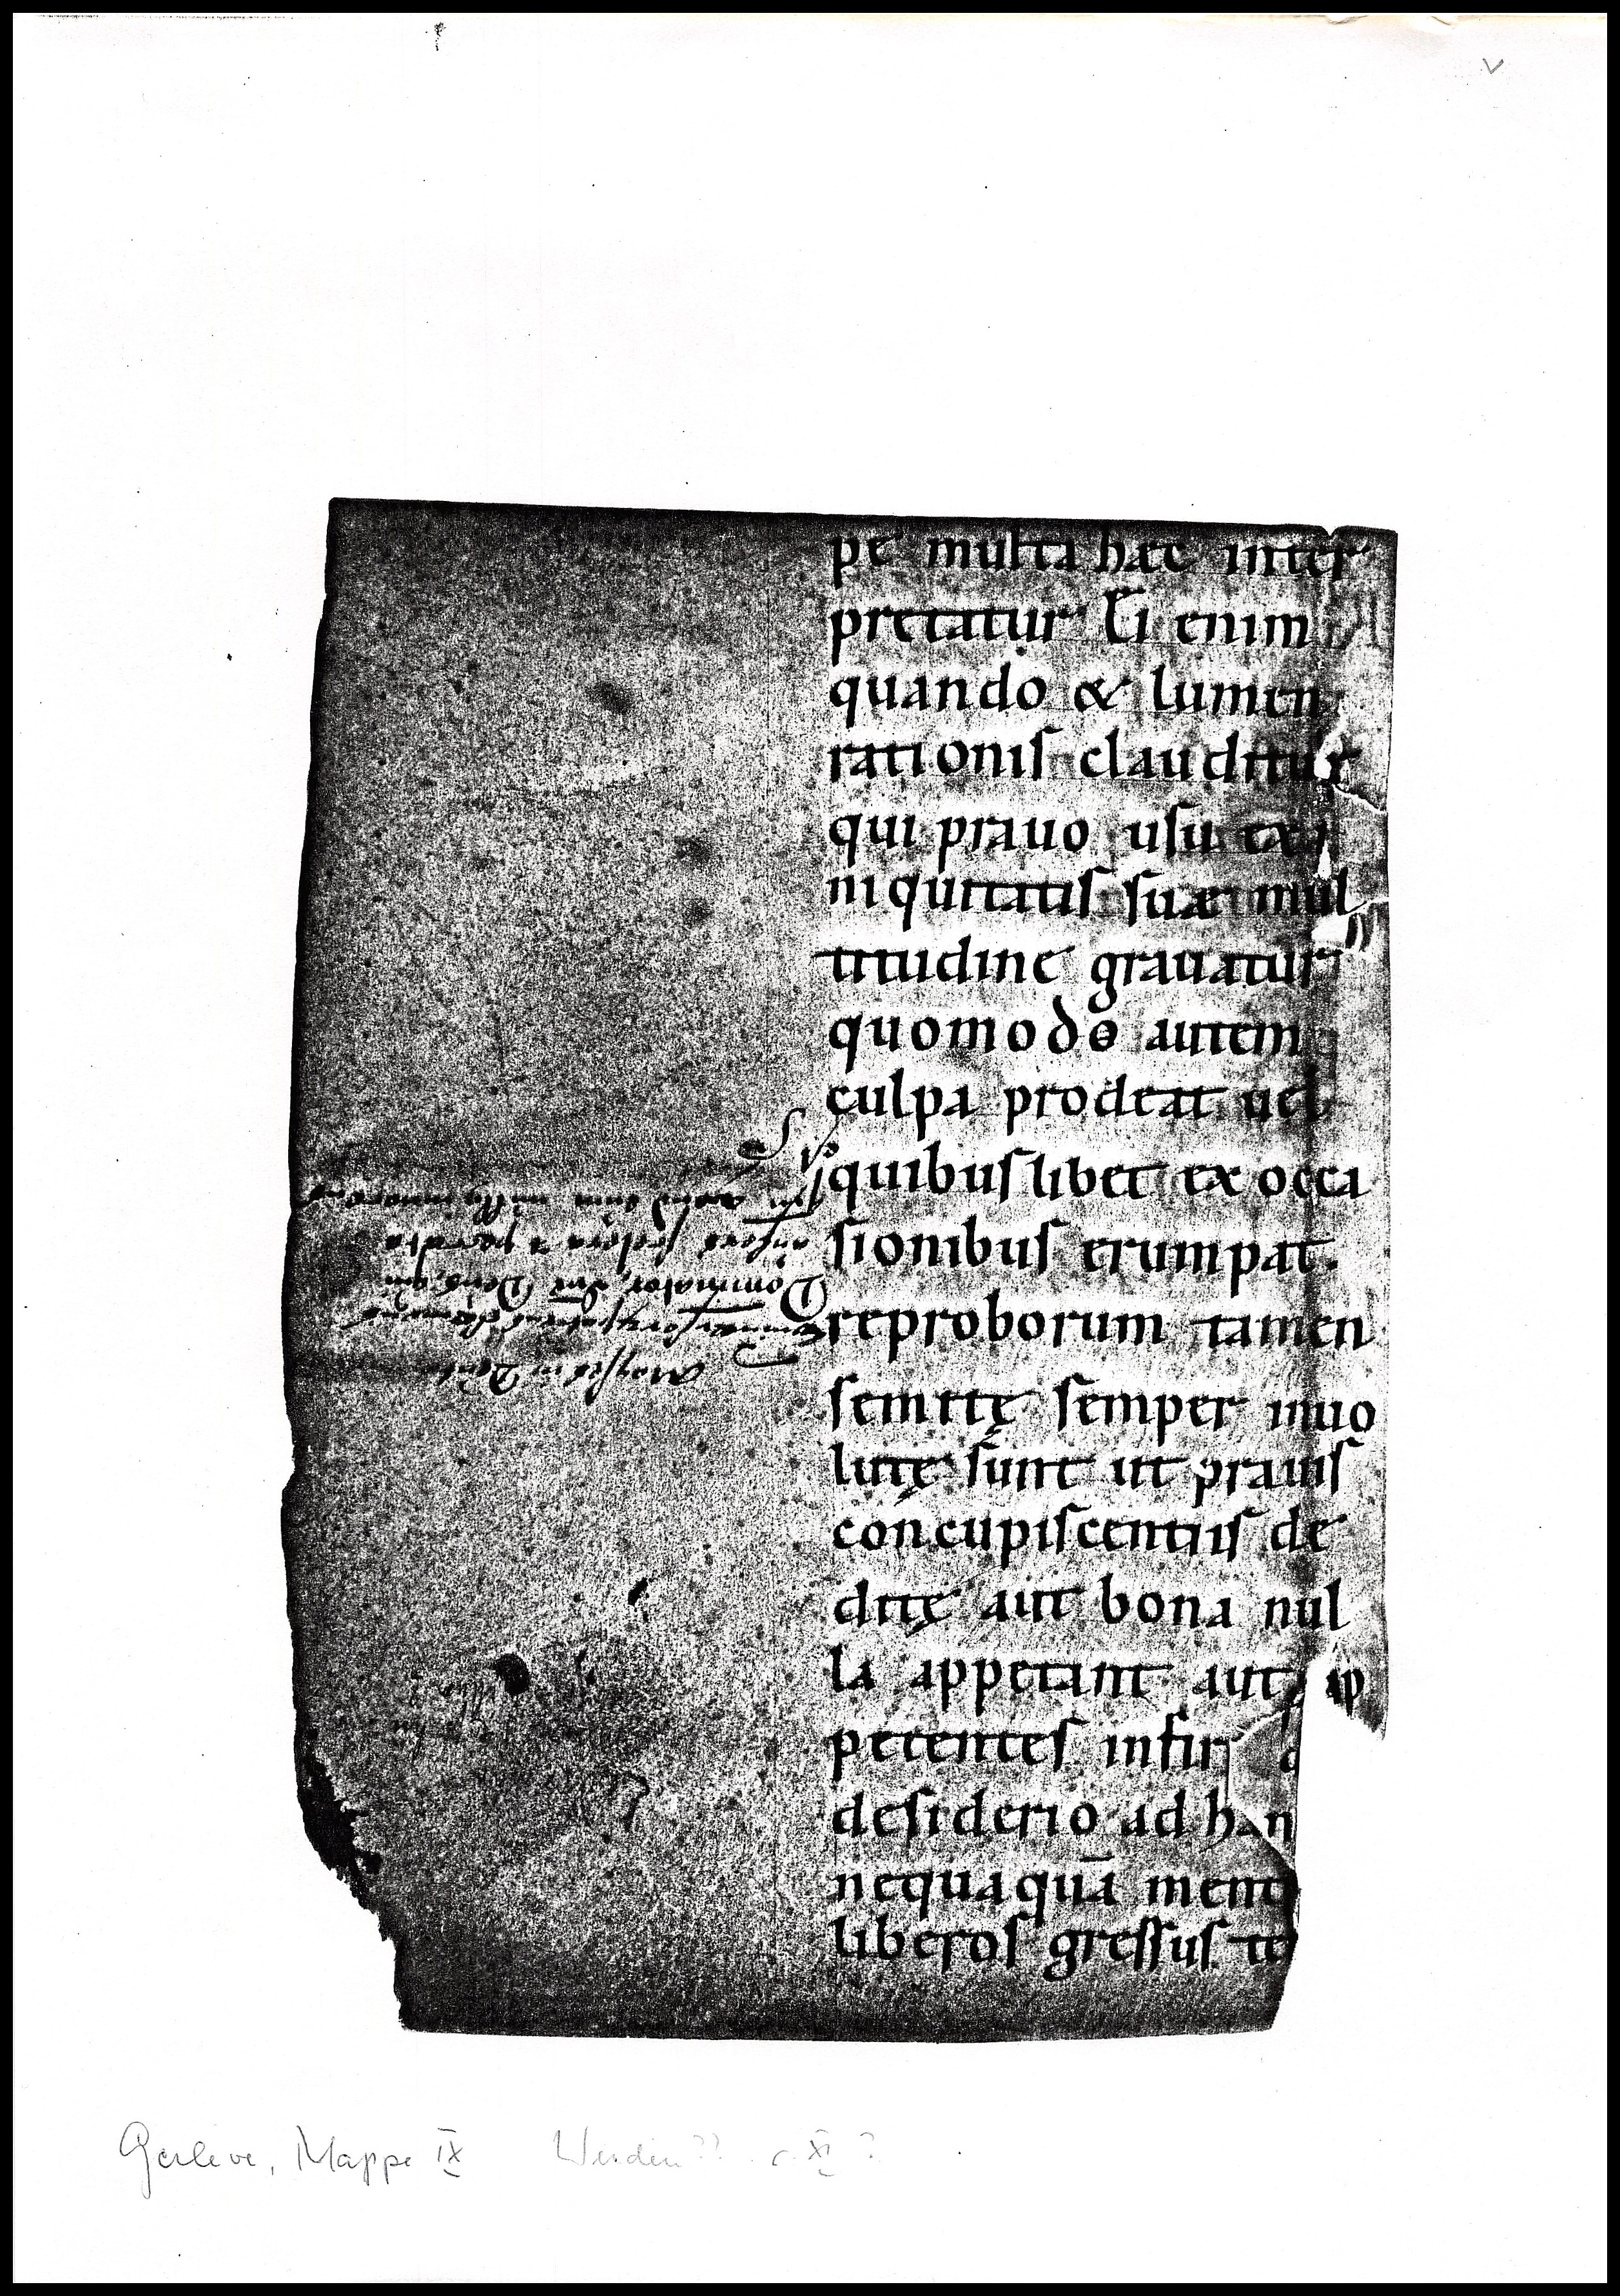 v
pe multa haec inter
pretatur Ei enim
quando & lumen
rationis clauditur
qui prauo usu ex i
niquitatis suae mul
titudine grauatur
quomodo autem
culpa prodeat uel
quibuslibet ex occa
sionibus erumpat.
reproborum tamen
semitę semper inuo
lutę sunt ut prauis
concupiscentiis de
ditę aut bona nul
la appetant aut ap
petentes infir
desiderio ad han
nequaquā ment
liberos gressus te
Moyses in
Dominator, Dn̄e Deus, qui
Gerleve, Mappe IX Werden?? s. XI ?